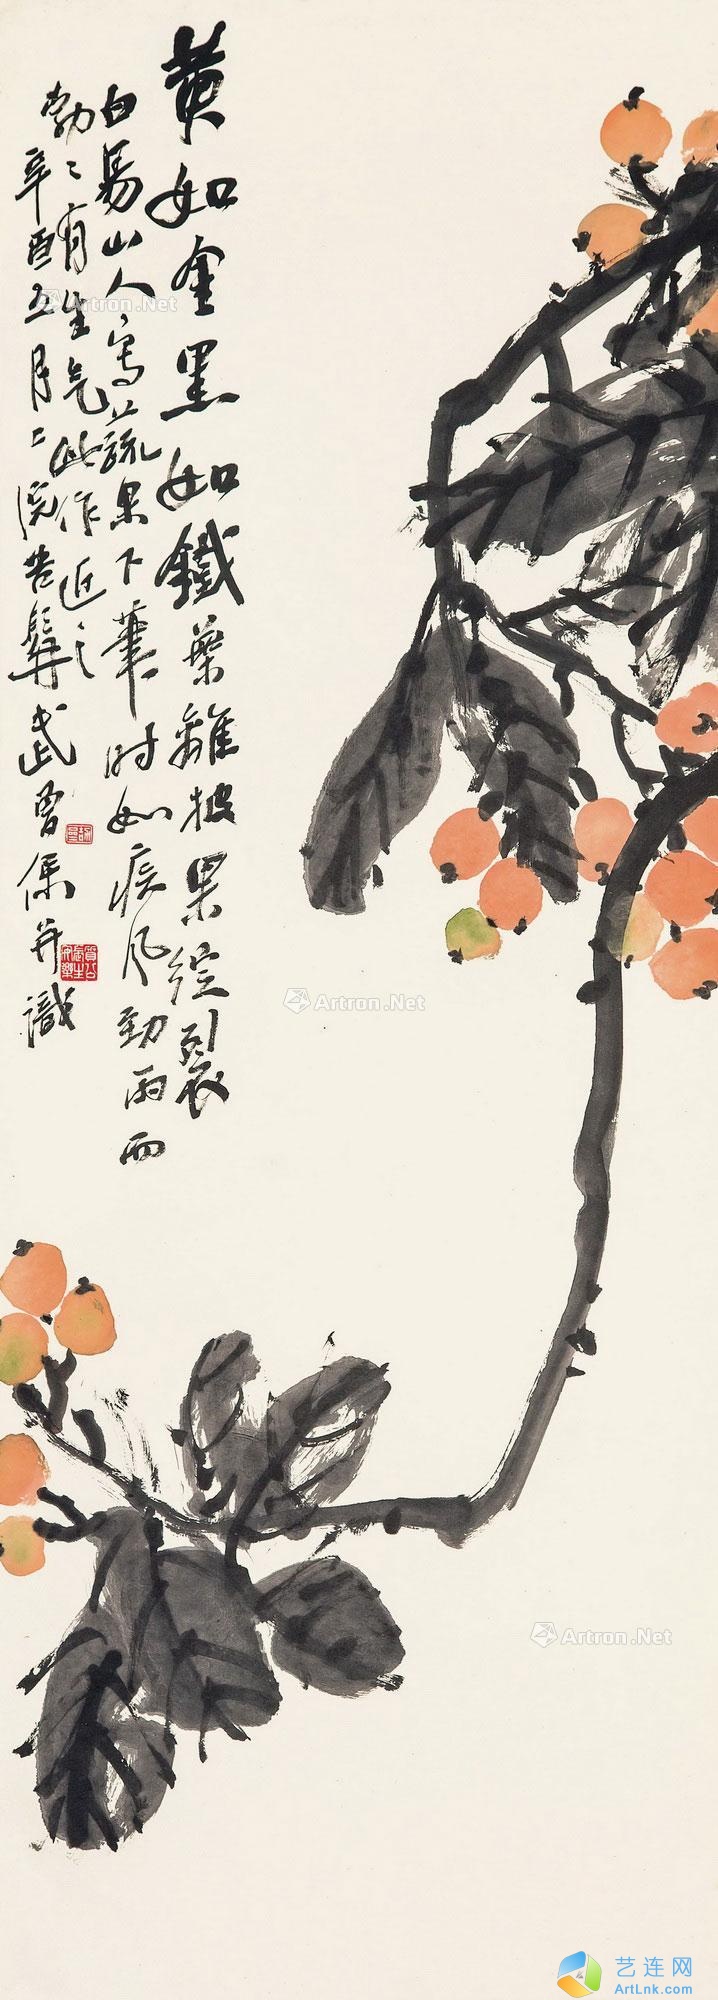 黄如金黑如鐵葉離披果綻裂
白昜山人寫蔬果下筆时如疾风勁雨而
勃〻有生气此作近之
辛酉五月二浣苦髯武曾保并識
Artron.Net
Artron.Net
Artron.Net
Artron.Net
艺连网
ArtLnk.com